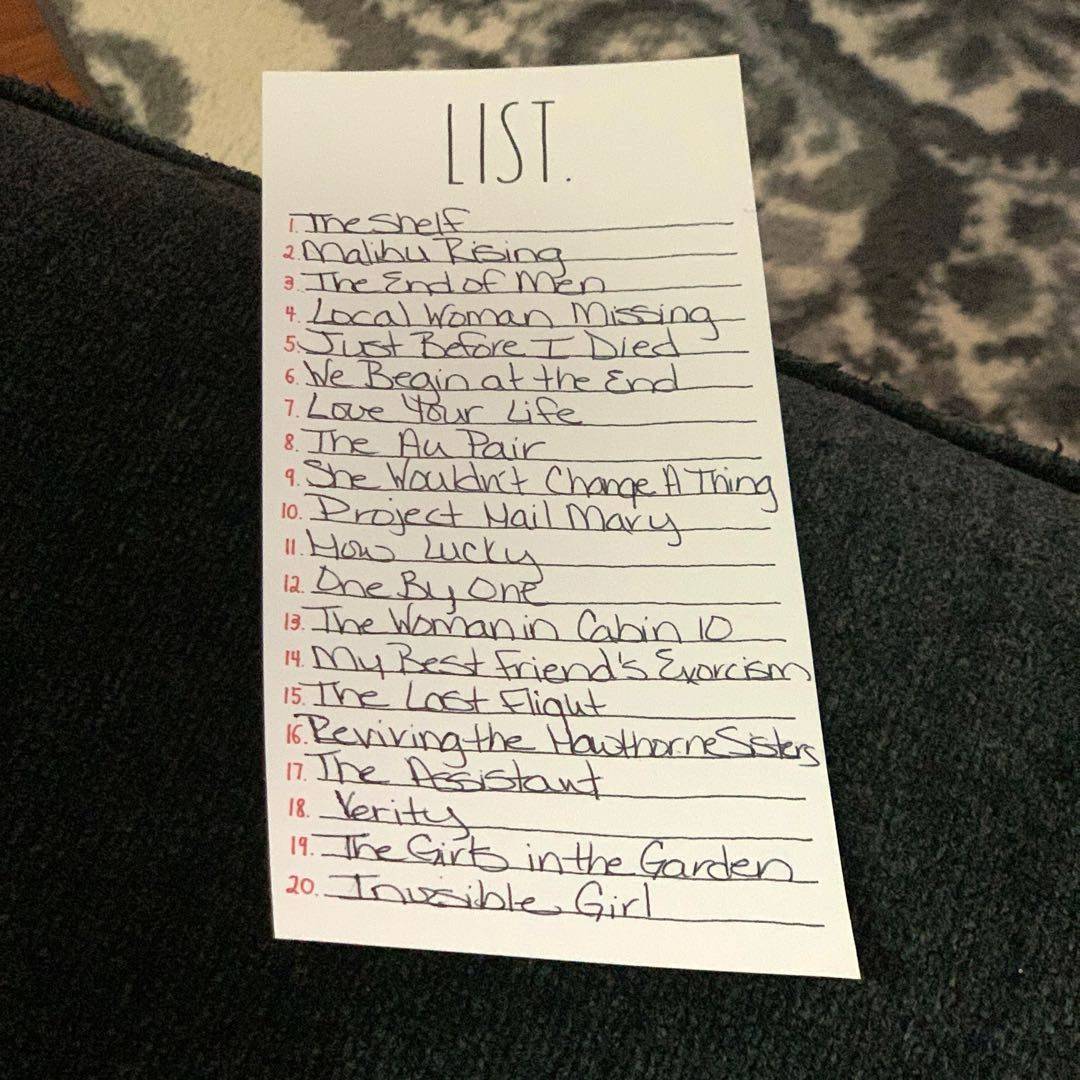 LIST.
1. The Shelf
2. Malibu Rising
3. The End of Men
4. Local Woman Missing
5. Just Before I Died
6. We Begin at the End
7. Love Your Life
8. The Au Pair
9. She Wouldn't Change A Thing
10. Project Hail Mary
11. How Lucky
12. One By One
13. The Woman in Cabin 10
14. My Best Friend's Exorcism
15. The Last Flight
16. Reviving the Hawthorne Sisters
17. The Assistant
18. Verity
19. The Girls in the Garden
20. Invisible Girl